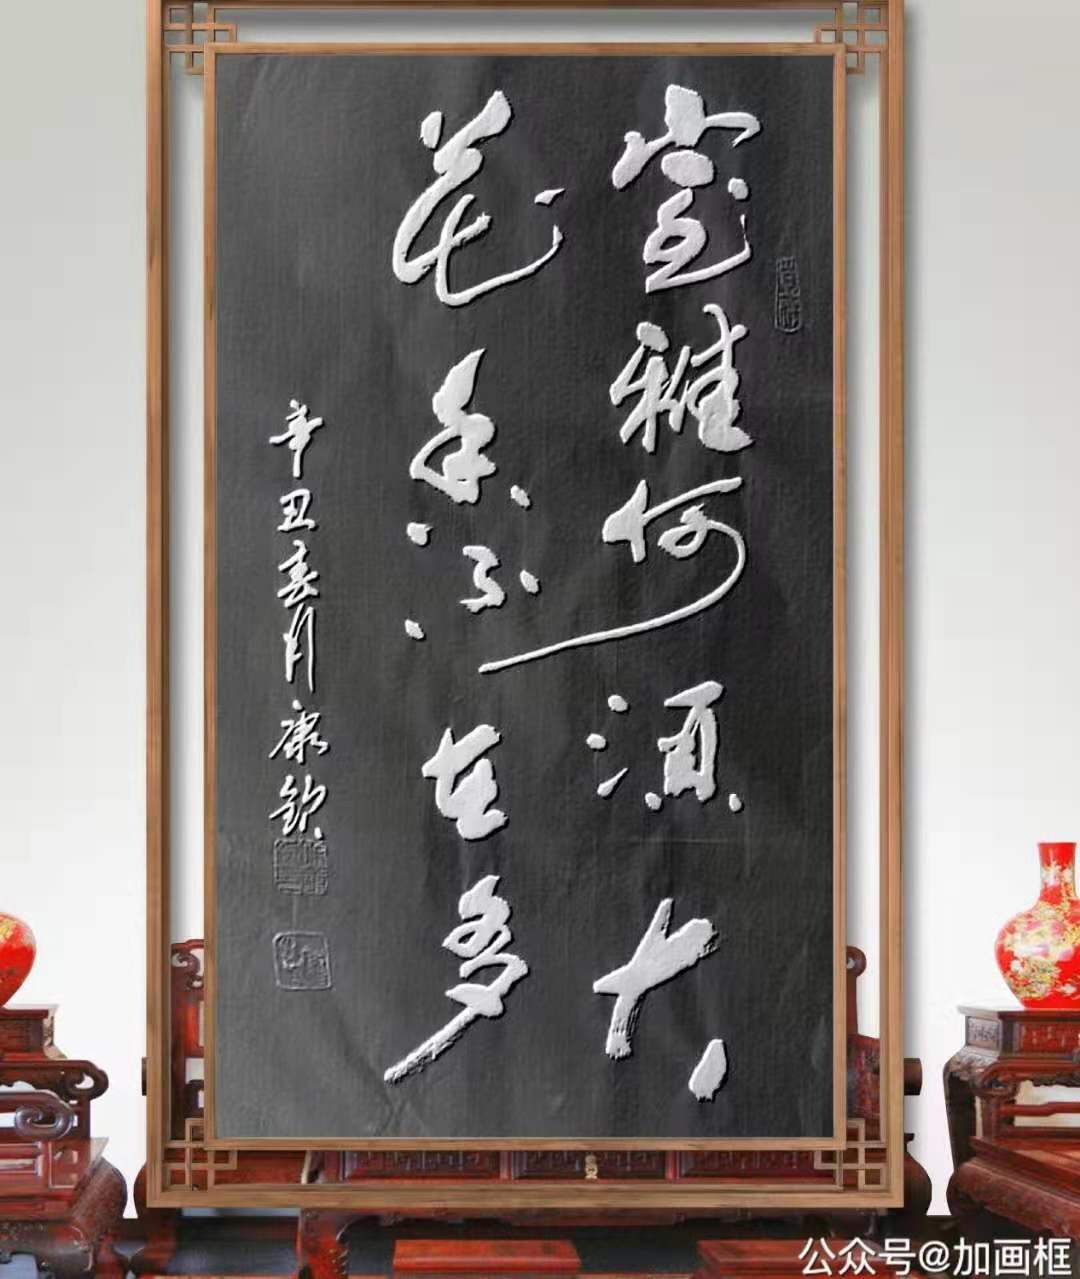 室雅何须大
花香不在多
辛丑春月康钦
公众号@加画框